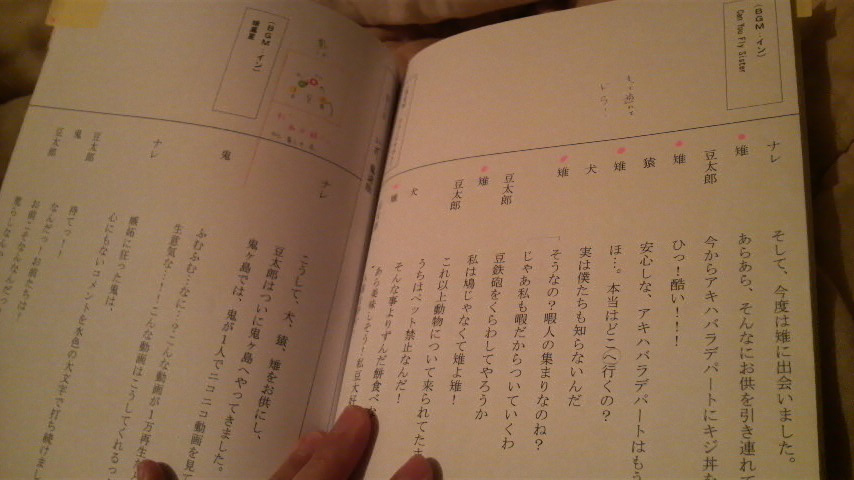 （BGM：イン）
Can You Fly Sister
ナレ　そして、今度は雉に出会いました。
雉　あらあら、そんなにお供を引き連れて
豆太郎　今からアキハバラデパートにキジ丼を
雉　ひっ！酷い！！！
猿　安心しな、アキハバラデパートはもう
雉　ほ…。本当はどこへ行くの？
犬　実は僕たちも知らないんだ
雉　「そうなの？暇人の集まりなのね？
じゃあ私も暇だからついていくわ
豆太郎　豆鉄砲をくらわしてやろうか
雉　私は鳩じゃなくて雉よ雉！
豆太郎　これ以上動物について来られてた
うちはペット禁止なんだ！
犬　そんな事よりずんだ餅食べ
雉　あら美味しそう！私豆大好
（BGM：イン）
ナレ　こうして、犬、猿、雉をお供にし、
豆太郎はついに鬼ヶ島へやってきました。
鬼ヶ島では、鬼が１人でニコニコ動画を見て
鬼　ふむふむ…なに…？こんな動画が１万再生だ
生意気な…！！こんな動画はこうしてくれるっ
ナレ　嫉妬に狂った鬼は、
心にもないコメントを水色の大文字で打ち続けまし
豆太郎　待てっ！！
鬼　なんだっ！お前たちは！
豆太郎　お前こそなんなんだっ